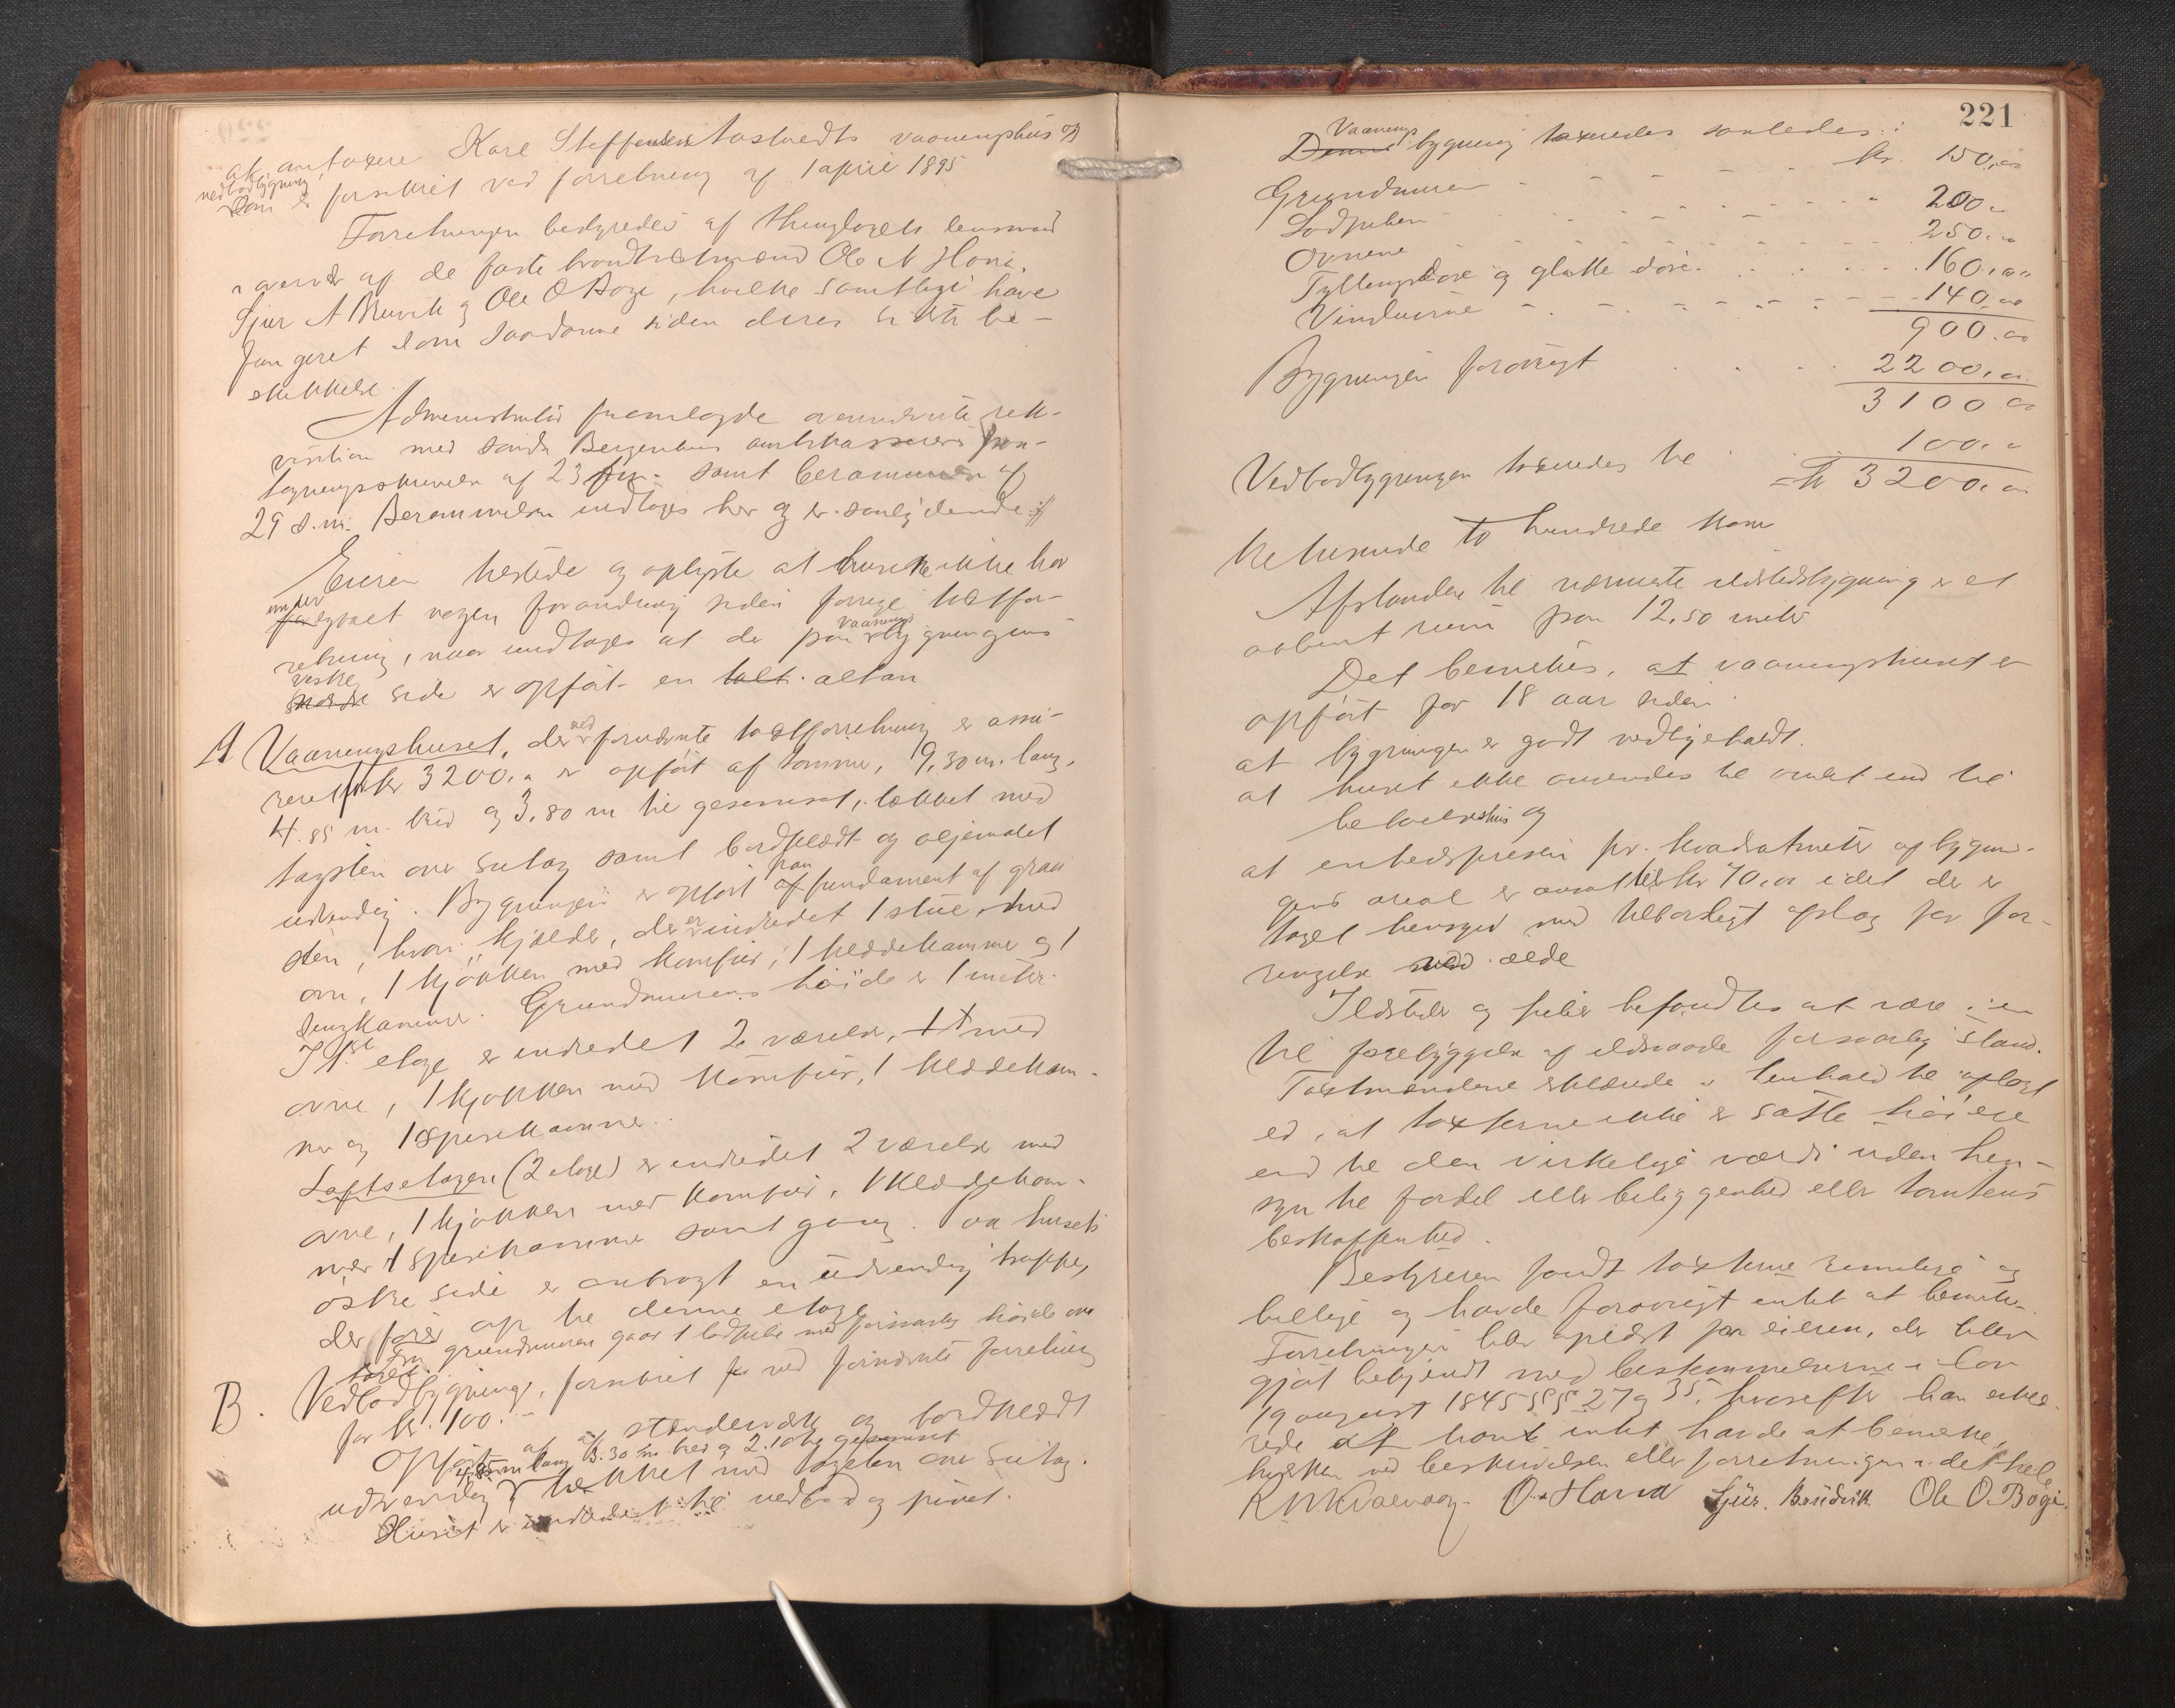 at omtaxere Karl Steffensen Tostvedts vaaningshus og
vedbodbygning
som er forsikret ved forretning af 1 april 1895
Forretningen bestyredes af thinglagets lensmand
i overvær af de faste brandtaxtmænd Ole N Horvi,
Sjur A Bruvik og Ole O Bøge, hvilke samtlige have
fungeret som saadanne siden deres sidste be-
skikkelse.
Administrator fremlagde ovennævnte rek-
visition med søndre Bergenhus amtskasserers paa-
tegningsskrivelse af 23 samt berammelse af
29 s.m. Berammelsen indtages her og er saalydende:
Eieren tilstede og oplyste at husene ikke har
undergaaet nogen forandring siden forrige taxtfor-
retning, naar undtages at der paa vaaningsbygningens
vestre
side er opført en altan
A Vaaningshuset, der ved forudnævnte taxtforretning er assu-
reret for kr 3200,00 er opført af tømmer, 9,30 m. lang,
4.85 m. bred og 3,80 m til gesemset, tækket med
tagsten over sutag samt bordklædt og oljemalet
udvendig. Bygningen er opført paa fundament af graa
sten, hvori kjelder, der er indredet 1 stue med
ovn, 1 kjøkken med komfur, 1 klædekammer og 1
sengkammer. Grundmurens høide er 1 meter.
I 1ste etage er indredet 2 værelser, med
ovne, 1 kjøkken med komfur, 1 klædekam-
mer og 1 spisekammer.
Loftsetagen (2 etage) er indredet 2 værelser med
ovne, 1 kjøkken med komfur, 1 klædekam-
mer 1 spisekammer samt gang. Paa husets
østre side er anbragt en udvendig trappe,
der fører op til denne etage
Fra grundmuren gaar 1 lodpibe med forsvarlig høide over
taget
B. Vedbodbygning, forsikret ved forudnævnte forretning
for kr. 100.-
Opført af stenderværk og bordklædt
4.85 m lang 3.30 m bred og 2.10 til gesemset
udvendig tækket med tagsten over sutag.
Huset er indredet til vedbod og privet.
221
Vaanings
Denne bygning taxeredes saaledes:
Grundmuren kr. 150,00
Lodpiben 200,-
Ovnene 250,00
Fyllingsdøre og glatte døre 160,00
Vinduerne 140,00
900.00
Bygningen forøvrigt 2200,00
3100.00
Vedbodbygningen taxeredes til 100,-
kr 3200,00
tretusinde to hundrede kroner
Afstanden til nærmeste ildstedsbygning er et
aabent rum paa 12,50 meter
Det bemerkes, at vaaningshuset er
opført for 18 aar siden
at bygningen er godt vedligeholdt.
at huset ikke anvendes til andet end til
beboelseshus og
at enhedsprisen pr. kvadratmeter af bygnin-
gens areal er ansat til kr 70,00 idet der er
taget hensyn med tilbørligt afslag for for-
ringelse ved ælde
Ildsteder og piber befandtes at være i en
til forebyggelse af ildsvaade forsvarlig stand.
Taxtmændene erklærede i henhold til aflagt
ed, at taxterne ikke er satte høiere
end til den virkelige værdi uden hen-
syn til fordel eller beliggenhed eller tomtens
beskaffenhed.
Bestyreren fandt taxterne rimelige og
billige og havde forøvrigt intet at bemerke.
Forretningen blev oplæst for eieren, der blev
gjort bekjendt med bestemmelserne i lov
19 august 1845 §§§ 27 og 35, hvorefter han erklæ-
rede at han intet havde at bemerke,
hverken ved beskrivelsen eller forretningen i det hele
R N Kvalvaag. O. N Horvi Sjur. Brudvik Ole O. Bøge.